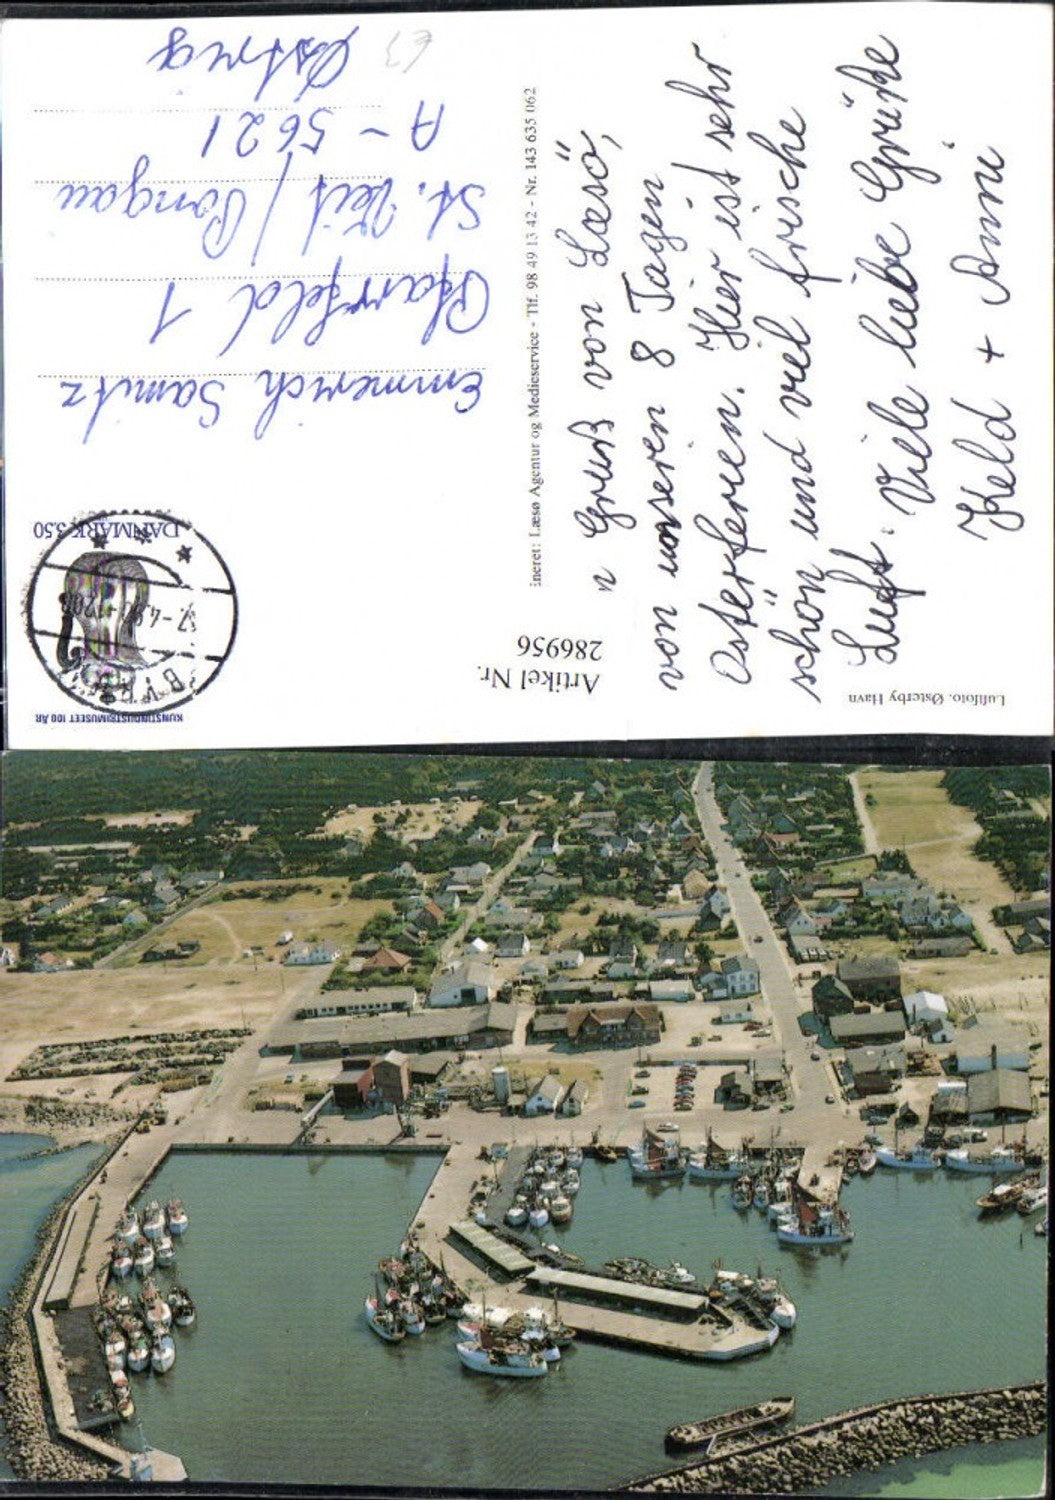 n Gruß von Læsö,
von unseren 8 Tagen
Osterferien. Hier ist sehr
schön und viel frische
Luft. Viele liebe Grüße
Keld + Anni
Luftfoto. Østerby Havn
Artikel Nr.
286956
ineret: Læsø Agentur og Medieservice - Tlf. 98 49 13 42 - Nr. 143 635 062
KUNSTINDUSTRIMUSEET 100 ÅR
DANMARK 3.50
Emmerich Samitz
Pfarrfeld 1
St. Veit / Pongau
A - 5621
Østrig
€3